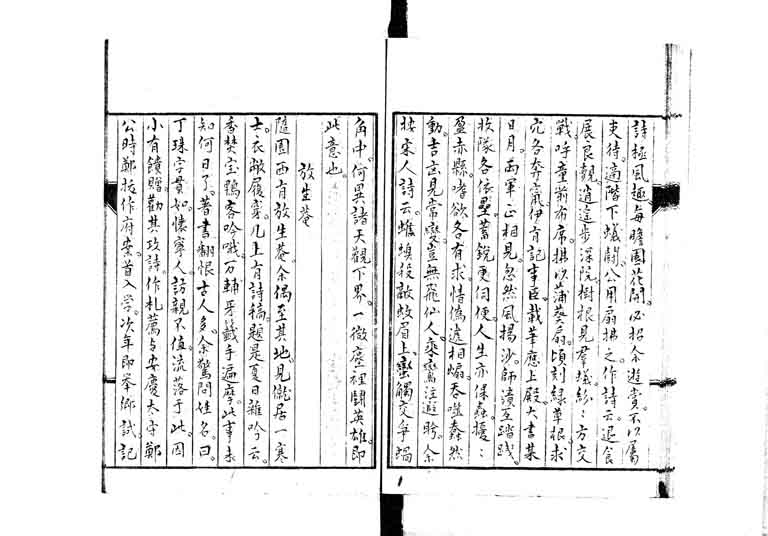 詩極風趣。每瞻園花開。必招余遊賞。不以屬
吏待。適階下蟻鬭。公用扇拂之。作詩云。退食
展良覿。逍遥步深院。樹根見羣蟻。紛〻方交
戰。呼童前布席。拂以蒲葵扇。頃刻緣草根。求
穴各奔竄。伊有記事臣。載筆應上殿。大書某
日月。兩軍正相見。忽然風揚沙。師潰互踏踐。
收隊各依壘。蓄銳更伺便。人生亦倮蟲。擾〻
盈赤縣。嗜欲各有求。情僞遞相煽。吞噬蠢然
動。吉凶見常變。豈無飛仙人。乘鸞注遐盻。余
按宋人詩云。蟭螟殺敵蚊眉上。蠻觸交爭蝸
角中。何異諸天觀下界。一微塵裡鬭英雄。即
此意也。
放生菴
隨園西有放生菴。余偶至其地。見僦居一寒
士。衣敝履穿。几上有詩稿。題是夏日雜吟云。
香焚宝鴨客吟哦。万軸牙籤手遍摩。此事未
知何日了。著書翻恨古人多。余驚問姓名。曰。
丁珠字貫如。懷寧人。訪親不值。流落于此。因
小有饋贈。勸其攻詩。作札薦与安慶太守鄭
公時。鄭拔作府案首。入學。次年即舉鄉試。記